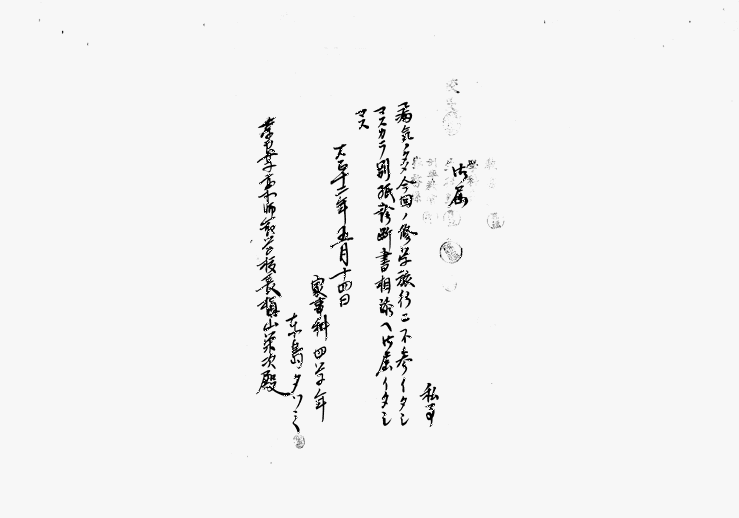 御届
私事
病気ノタメ今回ノ修学旅行ニ不参イタシ
マスカラ別紙診断書相添ヘ御届イタシ
マス
大正十二年五月十四日
家事科四学年
東島タツミ
奈良女子高等師範学校長槇山栄次殿